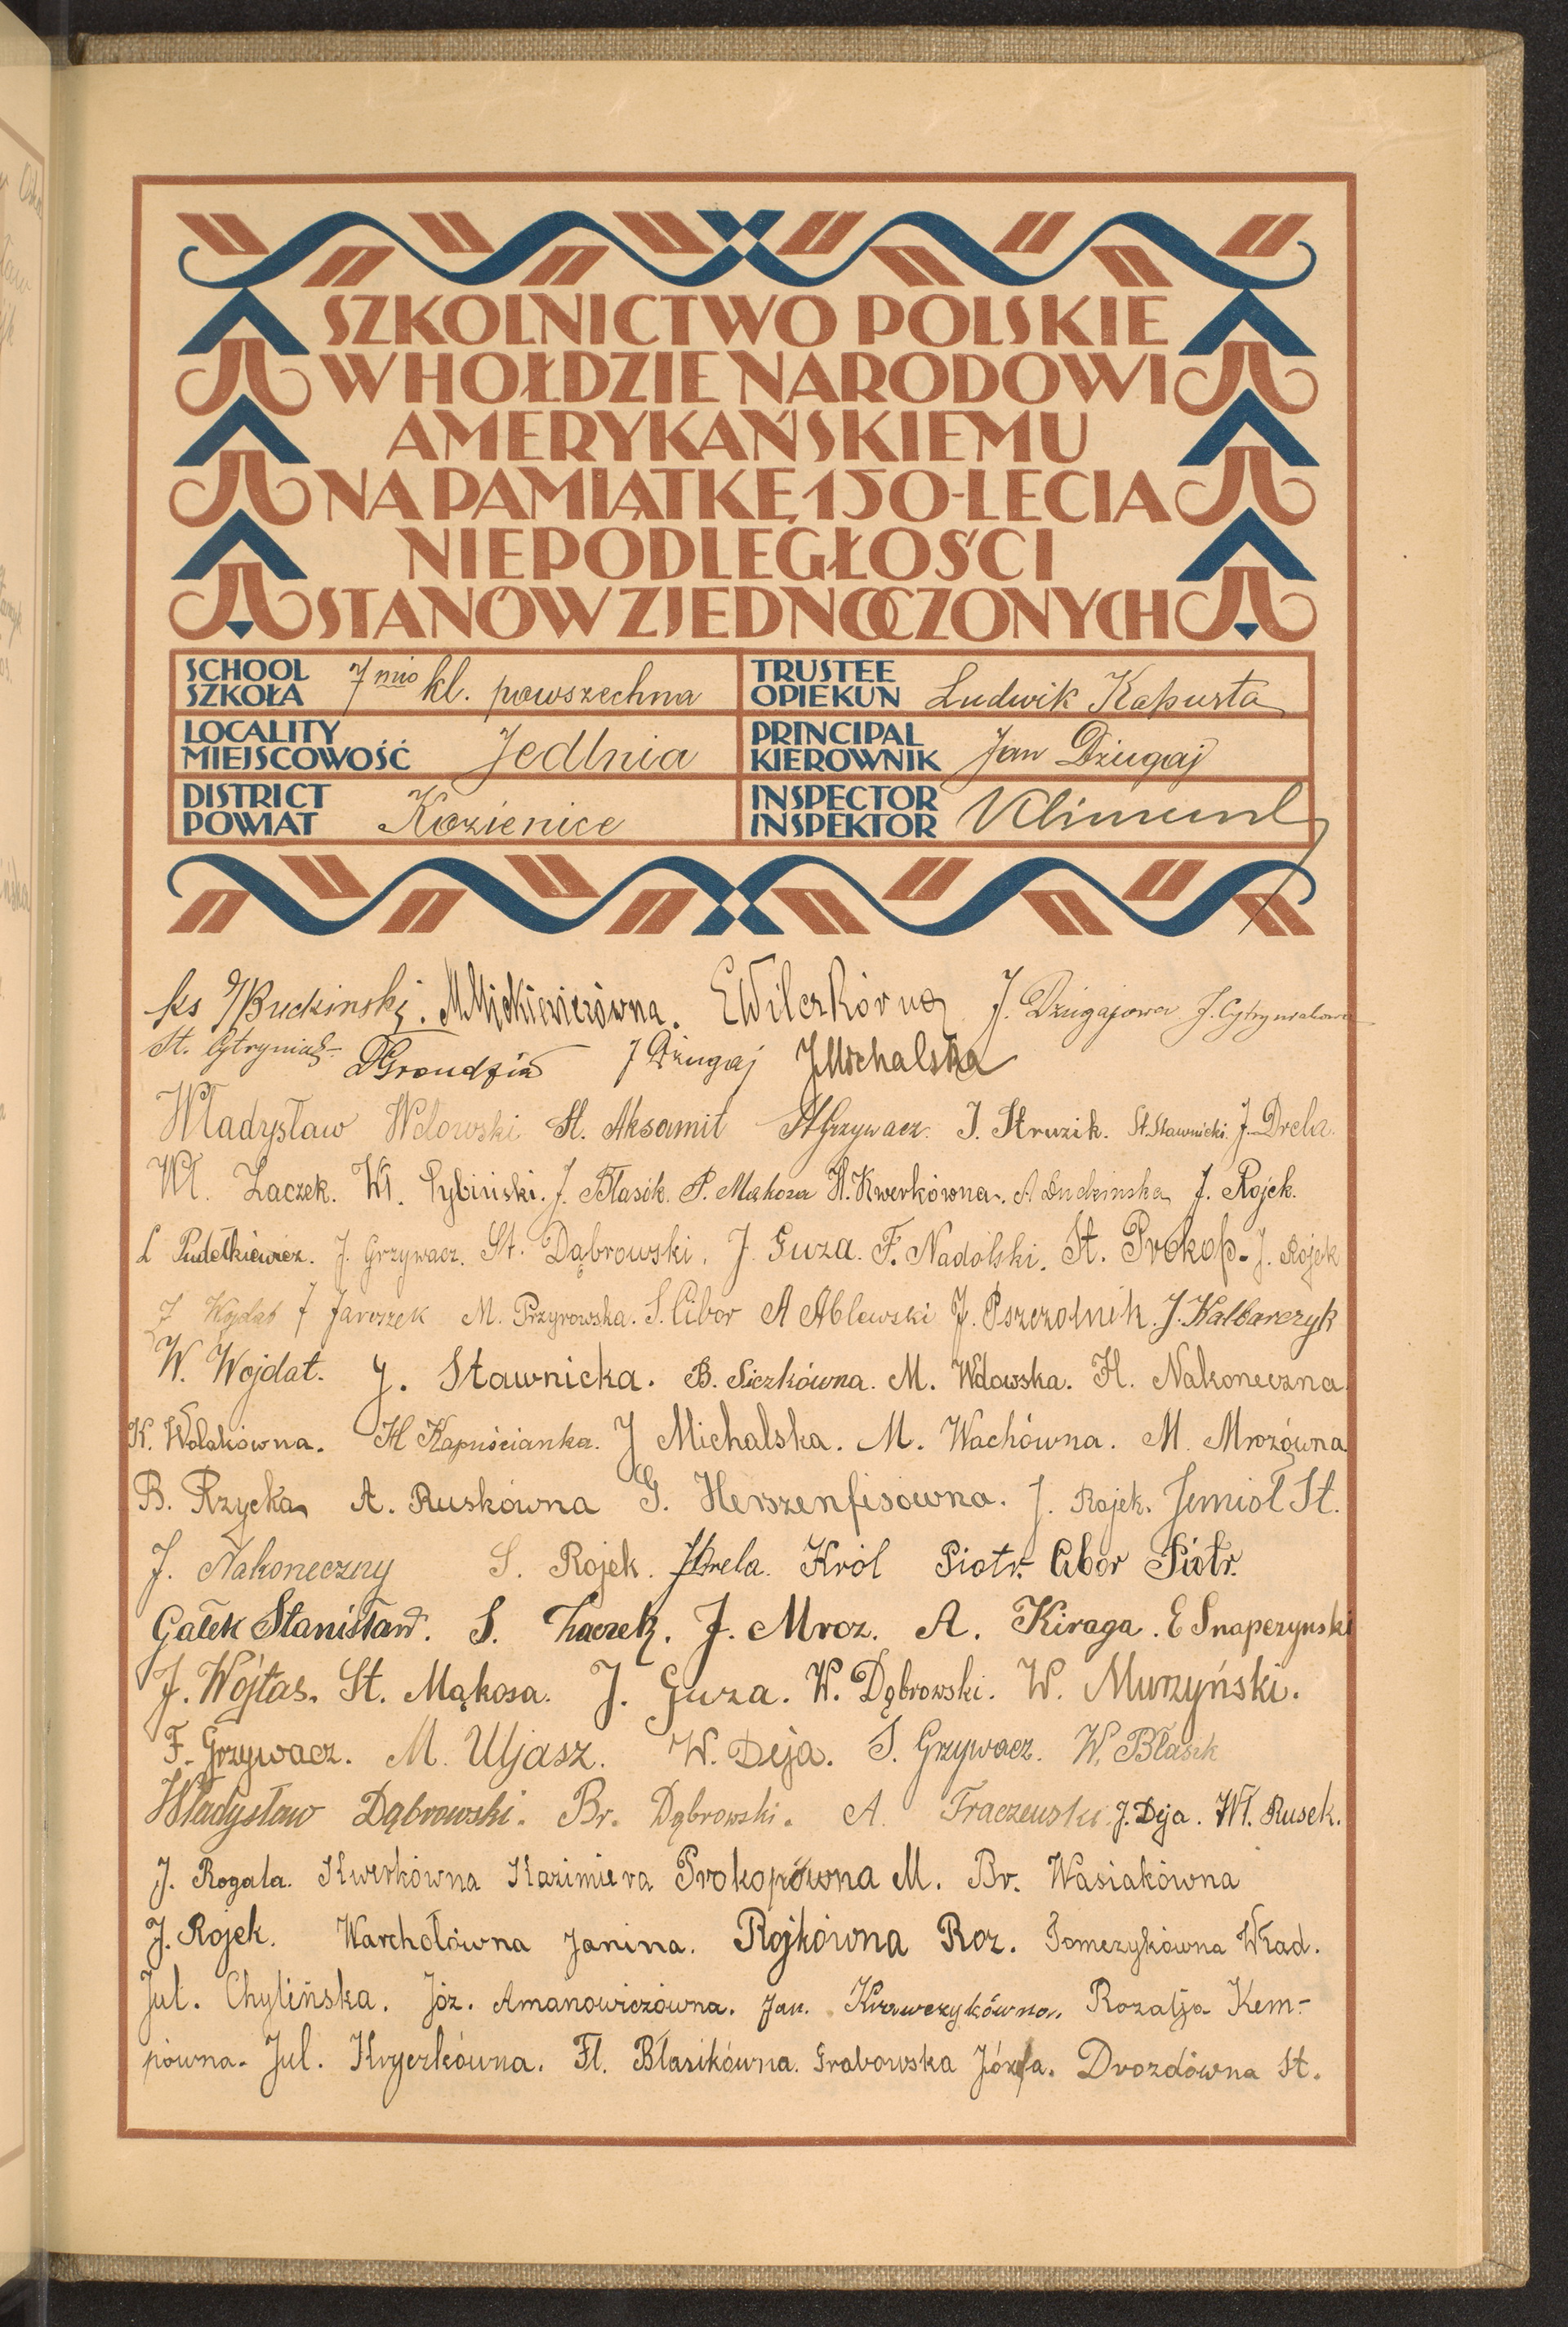 SZKOLNICTWO POLSKIE
W HOŁDZIE NARODOWI
AMERYKAŃSKIEMU
NA PAMIĄTKĘ 150-LECIA
NIEPODLEGŁOŚCI
STANÓW ZJEDNOCZONYCH
SCHOOL SZKOŁA 7 mio kl. powszechna
TRUSTEE OPIEKUN Ludwik Kapusta
LOCALITY MIEJSCOWOŚĆ Jedlnia
PRINCIPAL KIEROWNIK Jan Dżugaj
DISTRICT POWIAT Kozienice
INSPECTOR INSPEKTOR
ks M. Mickiewiczówna. E Wilczkówna J. Dżugajowa J. Cytryniakowa
St. Cytryniak J Dżugaj J Michalska
Władysław Welowski St. Aksamit St Grzywacz. J. Struzik. St. Sławnicki. J. Drela.
Wł. Żaczek. Wł. Sybiński. J. Błasik. P. Mąkosa H. Kwerkówna. J. Rojek.
L Pudełkiewicz. J. Grzywacz. St. Dąbrowski. J. Guza. F. Nadolski. St. Prokop. J. Rojek
J Jaroszek M. Przyrowska. S. Cibor A Ablewski J. Pszczolnik. J. Kalbarczyk
W. Wojdat. J. Sławnicka. B. Siczkówna. M. Wdowska. H. Nakoneczna.
K. Wolakówna. H Kapuścianka. J Michalska. M. Wachówna. M. Mrozówna
B. Rzycka A. Ruskówna G. Herszenfisówna. J. Rojek. Jemioł St.
J. Nakoneczny S. Rojek. J Drela. Król Piotr. Cibor Piotr.
Gałek Stanisław. S. Żaczek. J. Mroz. A. Kiraga. E Snaperzynski
J. Wójtas. St. Mąkosa. J. Guza. W. Dąbrowski. W. Murzyński.
F. Grzywacz. M. Uljasz. W. Deja. S. Grzywacz. W. Błasik
Władysław Dąbrowski. Br. Dąbrowski. A. Fraczewski J. Deja. Wł. Rusek.
J. Rogala. Kwerkówna Kazimiera Prokopówna M. Br. Wasiakówna
J. Rojek. Warchołówna Janina. Rojkówna Roz. Tomczykówna Wład.
Jul. Chylińska. Józ. Amanowiczówna. Jan. Krawczykówna. Rozalja Kem-
pówna. Jul. Kwerkówna. Fl. Błasikówna. Grabowska Józefa. Drozdówna St.